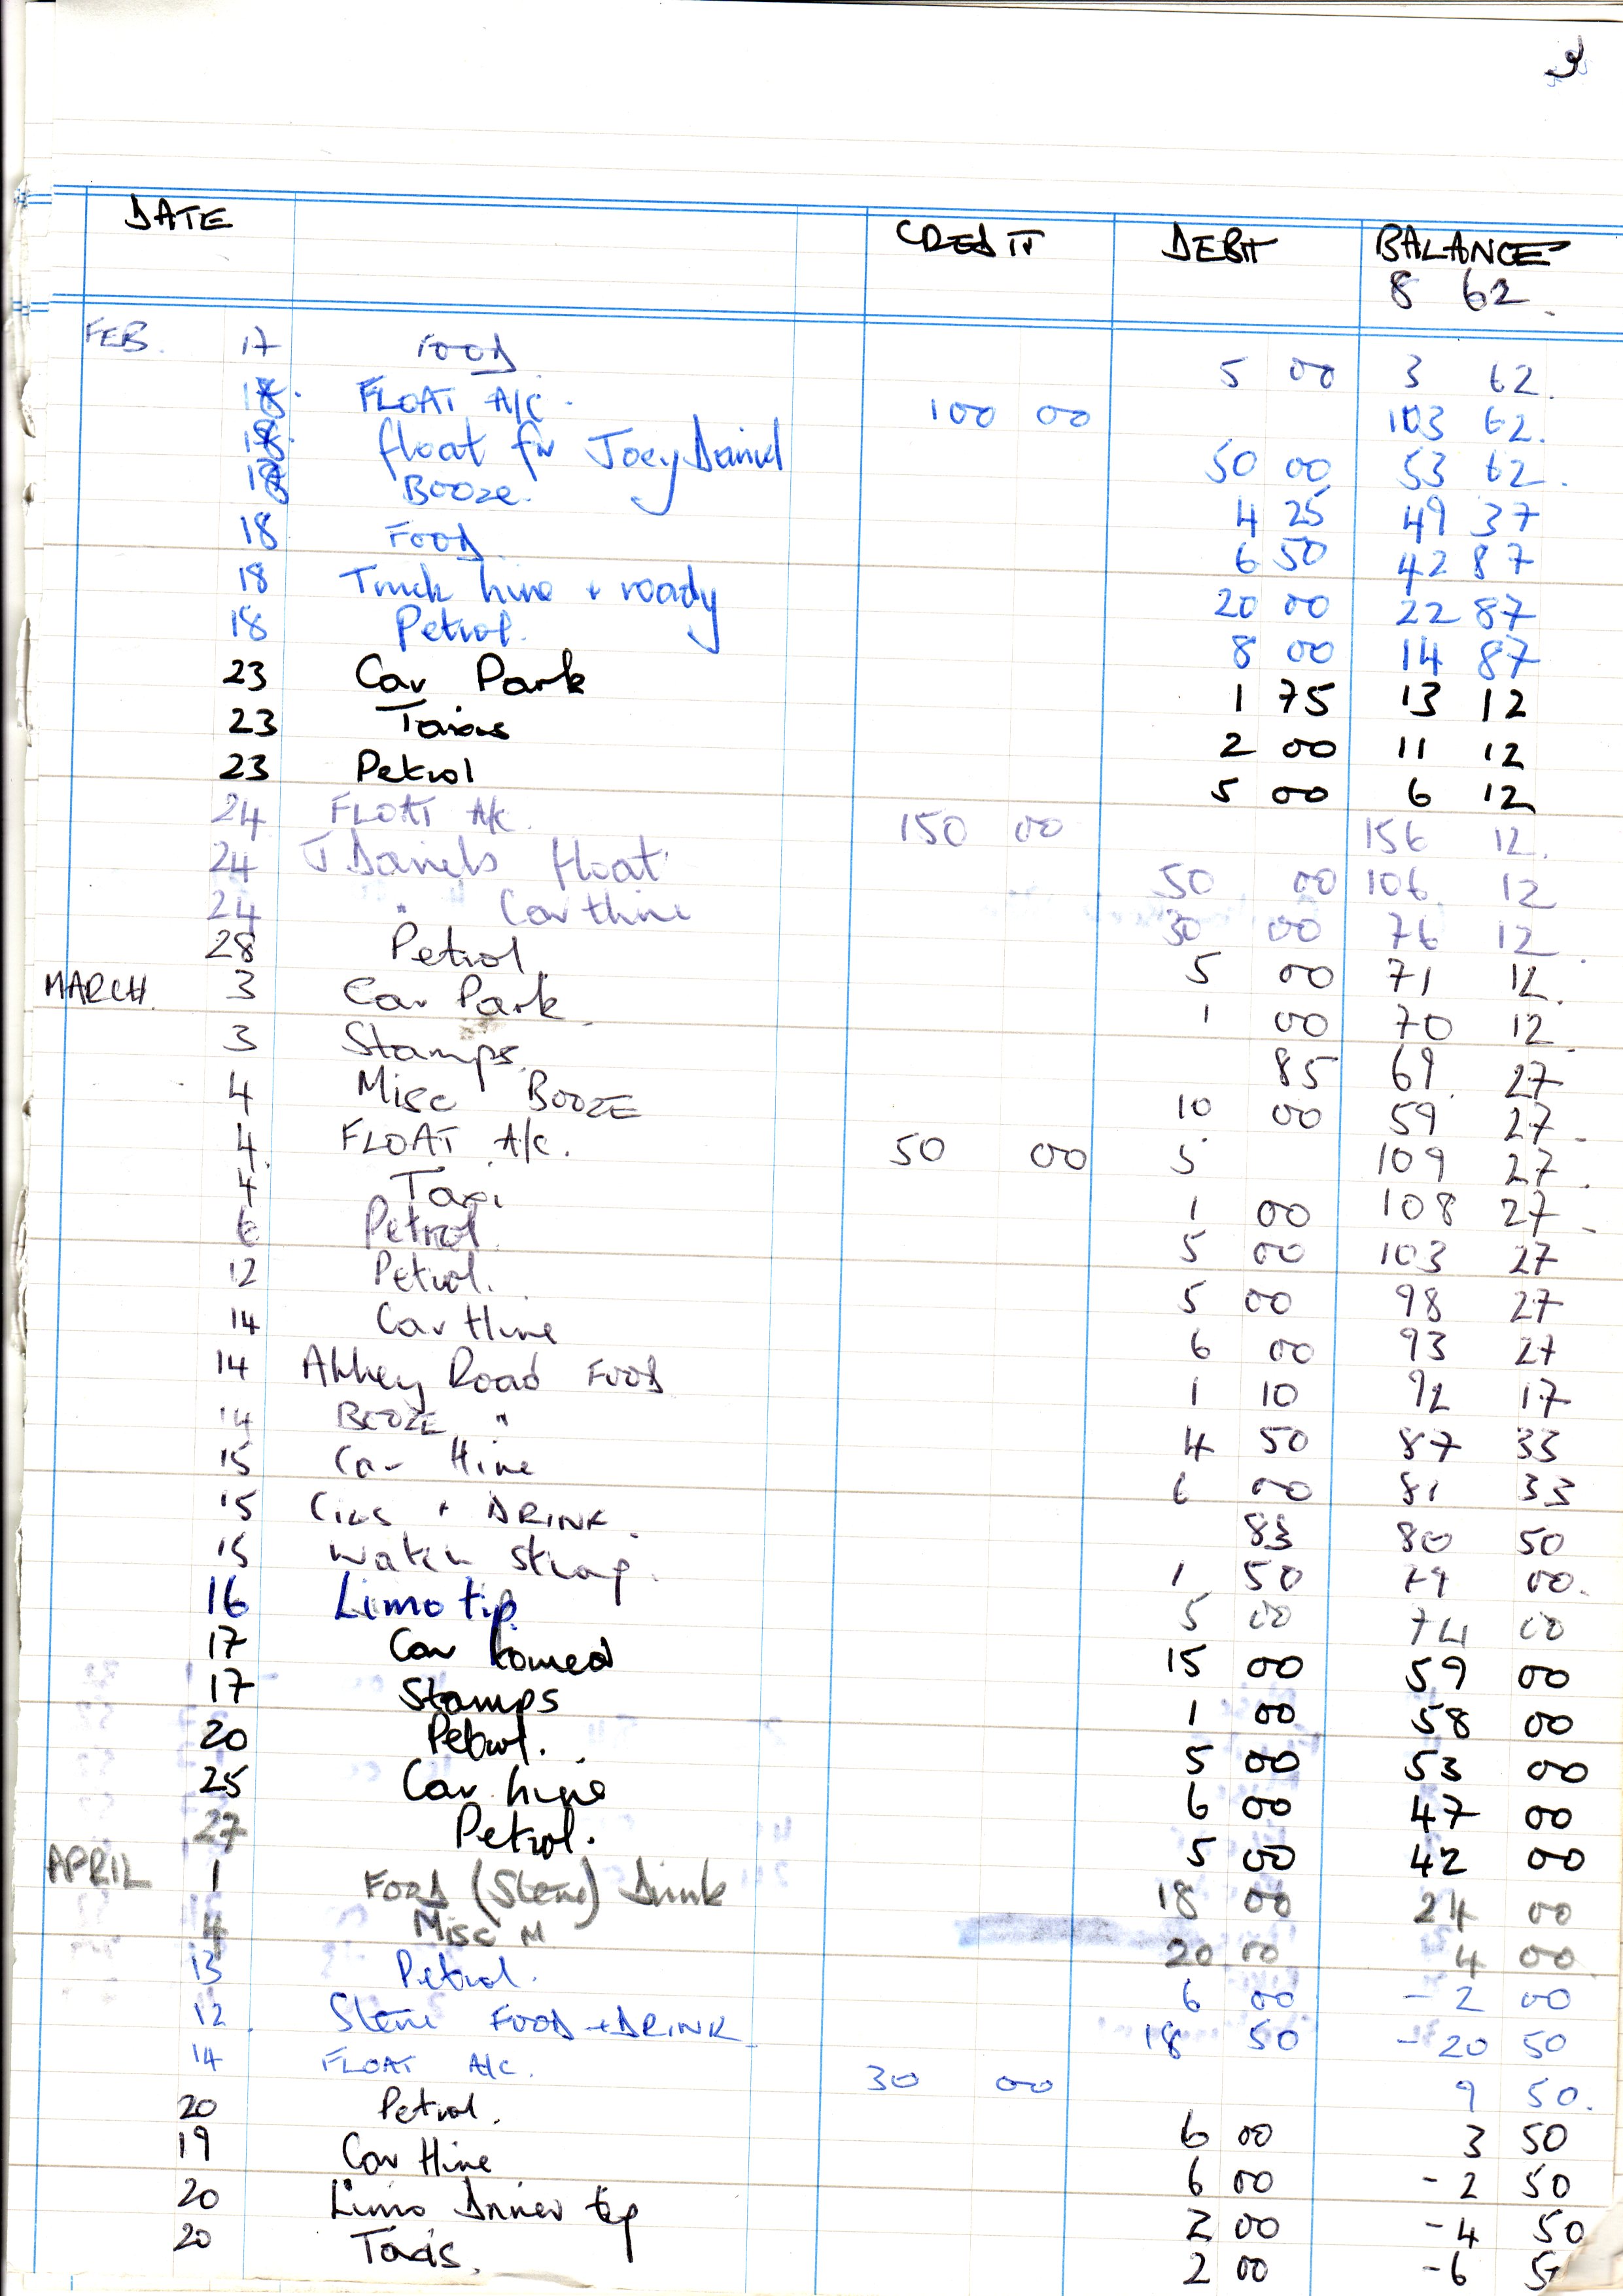 DATE CREDIT DEBIT BALANCE
8 62
FEB. 17 FOOD 5 00 3 62.
18. FLOAT A/C. 100 00 103 62.
18. float for Joey Daniel 50 00 53 62.
18 Booze. 4 25 49 37
18 FOOD 6 50 42 87
18 Truck hire + roady 20 00 22 87
18 Petrol. 8 00 14 87
23 Car Park 1 75 13 12
23 Taxis 2 00 11 12
23 Petrol 5 00 6 12
24 FLOAT A/C. 150 00 156 12.
24 J Daniels float 50 00 106 12
24 " Car Hire 30 00 76 12.
28 Petrol. 5 00 71 12.
MARCH. 3 Car Park. 1 00 70 12.
3 Stamps. 85 69. 27
4 Misc BOOZE 10 00 59 27.
4. FLOAT A/C. 50 00 5 109 27.
4 Taxi 1 00 108 27
6 Petrol. 5 00 103 27
12 Petrol. 5 00 98 27
14 Car Hire 6 00 93 27
14 Abbey Road FOOD 1 10 92 17
14 BOOZE " 4 50 87 33
15 Car Hire 6 00 81 33
15 Cigs + DRINK. 83 80 50
15 Watch Strap. 1 50 79 00.
16 Limo tip 5 00 74 00
17 Car towed 15 00 59 00
17 Stamps 1 00 58 00
20 Petrol. 5 00 53 00
25 Car hire 6 00 47 00
27 Petrol. 5 00 42 00
APRIL 1 FOOD (Steve) Drink 18 00 24 00
4 Misc M 20 00 4 00
13 Petrol. 6 00 - 2 00
12. Steve FOOD + DRINK 18 50 - 20 50
14 FLOAT A/C. 30 00 9 50.
20 Petrol. 6 00 3 50
19 Car Hire 6 00 - 2 50
20 Limo Driver tip 2 00 - 4 50
20 Taxis. 2 00 - 6